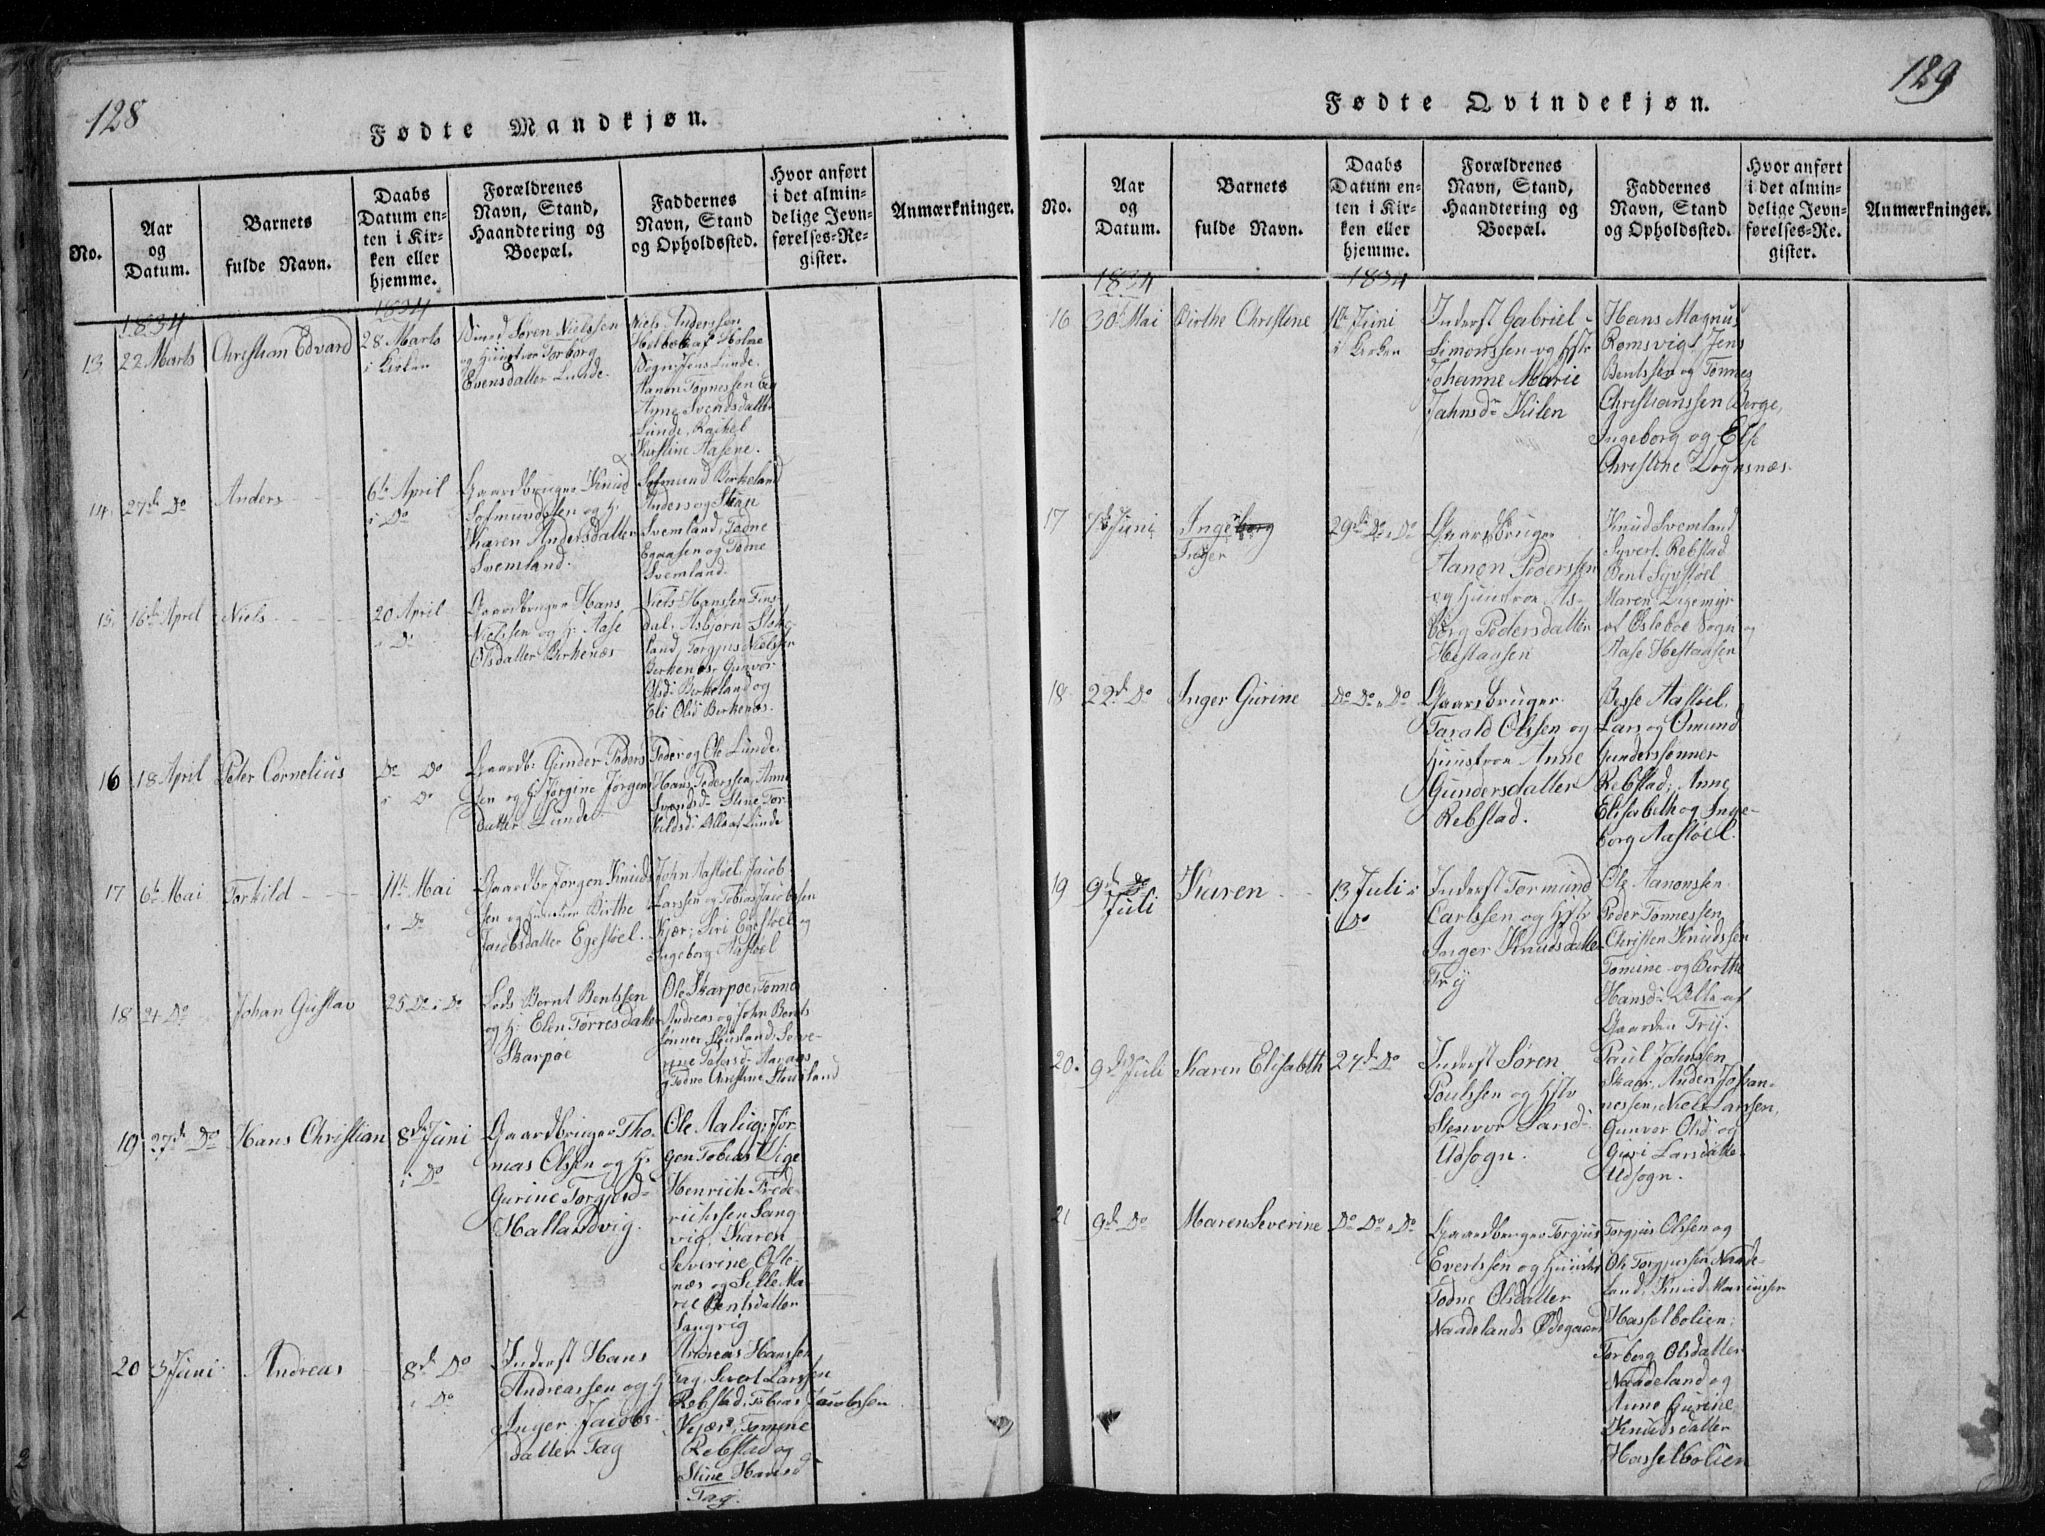 128
Fødte Mandkjøn.
No.
Aar
og
Datum.
Barnets
fulde Navn.
Daabs
Datum en-
ten i Kir-
ken eller
hjemme.
Forældrenes
Navn, Stand,
Haandtering og
Boepæl.
Faddernes
Navn, Stand
og Opholdssted.
Hvor anført
i det almin-
delige Jevn-
førelses-Re-
gister.
Anmærkninger.
1834
1834
13
22 Marts
Christian Edvard
28 Marts
i Kirken
Søren Nielssen
og Huustroe Torborg
Evensdatter Lunde.
Niels Anderssen
af Holme
Sogn, Jens Lunde,
Aanon Tønnessen og
Anne Svendsdatter
Lunde, Rachel
Kirstine Aasene.
14
27de Do
Anders
6te April
i Do
Gaardbruger Knud
Sofmundssen og H.
Karen Andersdatter
Svemland.
Sofmund Berkeland
Anders og Stian
Svemland; Todne
Egaasen og Todne
Svemland.
15
16de April
Niels
20 April
i Do
Gaardbruger Hans
Nielssen og H. Aase
Olsdatter Birkenæs
Niels Hanssen Fins
dal, Asbjørn Stoke
land, Torgjus Nielssen
Berkenæs, Gunvor
Olsd: Berkeland og
Eli Olsd Berkenæs.
16
18 April
Peter Cornelius
Do Do
i Do
Gaardb: Gunder Peders
sen og H. Jørgine Jørgens
datter Lunde
Peder og Ole Lunde,
Hans Pederssen, Anne
Svendsd: Stine Tor-
kildsd: Alle af Lunde
17
6te Mai
Torkild
11te Mai
i Do
Gaardbr Jørgen Knuds
sen og Huustroe Birthe
Jacobsdatter Egestøel.
John Aastøel, Jacob
Larssen og Tobias Jacobssen
Kjær; Siri Egestøel og
Ingeborg Aastøel
18
24 Do
Johan Gustav
25 Do i Do
Lods Bernt Bentssen
og H: Elen Torresdatter
Skarpøe
Ole Skarpøe, Tønnes
Andreas og John Bents
sønner Stousland; Seve-
rine Pedersd: Aanaas
og Todne Christine Stousland
19
27de Do
Hans Christian
8de Juni
i Do
Gaardbruger Tho-
mas Olssen og H.
Gurine Torgjusd:
Hallandvig.
Ole Aalug; Jør-
gen Tobias Vige
Henrich Frede-
richssen Sang
vig, Karen
Severine Ofte-
næs og Sille Ma-
rie Bentsdatter
Sangvig
20
3 Juni
Andreas
8de Do
i Do
Inderst Hans
Andreassen og H
Inger Jacobs-
datter Tag
Andreas Hanssen
Tag, Sivert Larssen
Rebstad, Tobias Jacobssen
Kjær, Tomine
Rebstad og
Stine Hansd
Tag.
129
Fødte Qvindekjøn.
No.
Aar
og
Datum.
Barnets
fulde Navn.
Daabs
Datum en-
ten i Kir-
ken eller
hjemme.
Forældrenes
Navn, Stand,
Haandtering og
Boepæl.
Faddernes
Navn, Stand
og Opholdssted.
Hvor anført
i det almin-
delige Jevn-
førelses-Re-
gister.
Anmærkninger.
1834
1834
16
30te Mai
Birthe Christine
Juni
i Kirken
Inderst Gabriel
Simonssen og Hstr
Johanne Marie
Jahnsdr Kilen
Hans Magnus
Romsvigt, Jens
Bentssen og Tønnes
Christianssen Berge,
Ingeborg og Else
Christine Dognsnæs.
17
7de Juni
Ingeborg
Inger
29de Do i Do
Gaardbruger
Aanon Pederssen
og Huustroe As-
borg Pedersdatter
Hestaasen
Knud Svemland
Syvert Rebstad
Bent Syvstøel
Maren Ligemyr
af Øslebøe Sogn og
Aase Hestaasen
18
22de Do
Inger Gurine
Do Do i Do
Gaardbruger
Tarald Olssen og
Huustroe Anne
Gundersdatter
Rebstad.
Besse Aastøel,
Lars og Omund
Gunderssønner
Rebstad; Anne
Elisabeth og Inge-
borg Aastøel.
19
9de
Juli
Karen
13 Juli i
Do
Inderst Tormund
Carlssen og Hstr
Inger Knudsdatter
Try
Ole Aanonssen
Peder Tønnessen
Christen Knudssen
Tomine og Birthe
Hansd: Alle af
Gaarden Try.
20.
9de Juli
Karen Elisabeth
27de Do
Inderst Søren
Poulssen og Hstr
Stenvor Larsd:
Udsogn.
Paul Johnssen
Skaar, Anders Johan-
nessen, Niels Larssen,
Gunvor Olsd: og
Guri Larsdatter
Udsogn.
21
9de Do
Maren Severine
Do Do i Do
Gaardbruger Torgjus
Evertssen og Huustr
Todne Olsdatter
Naadelands Ødegaard
Torgjus Olssen og
Ole Torgjussen Naade-
land, Knud Mariussen
Hasselbolien;
Torborg Olsdatter
Naadeland og
Anne Gurine
Knudsdatter
Hasselbolien